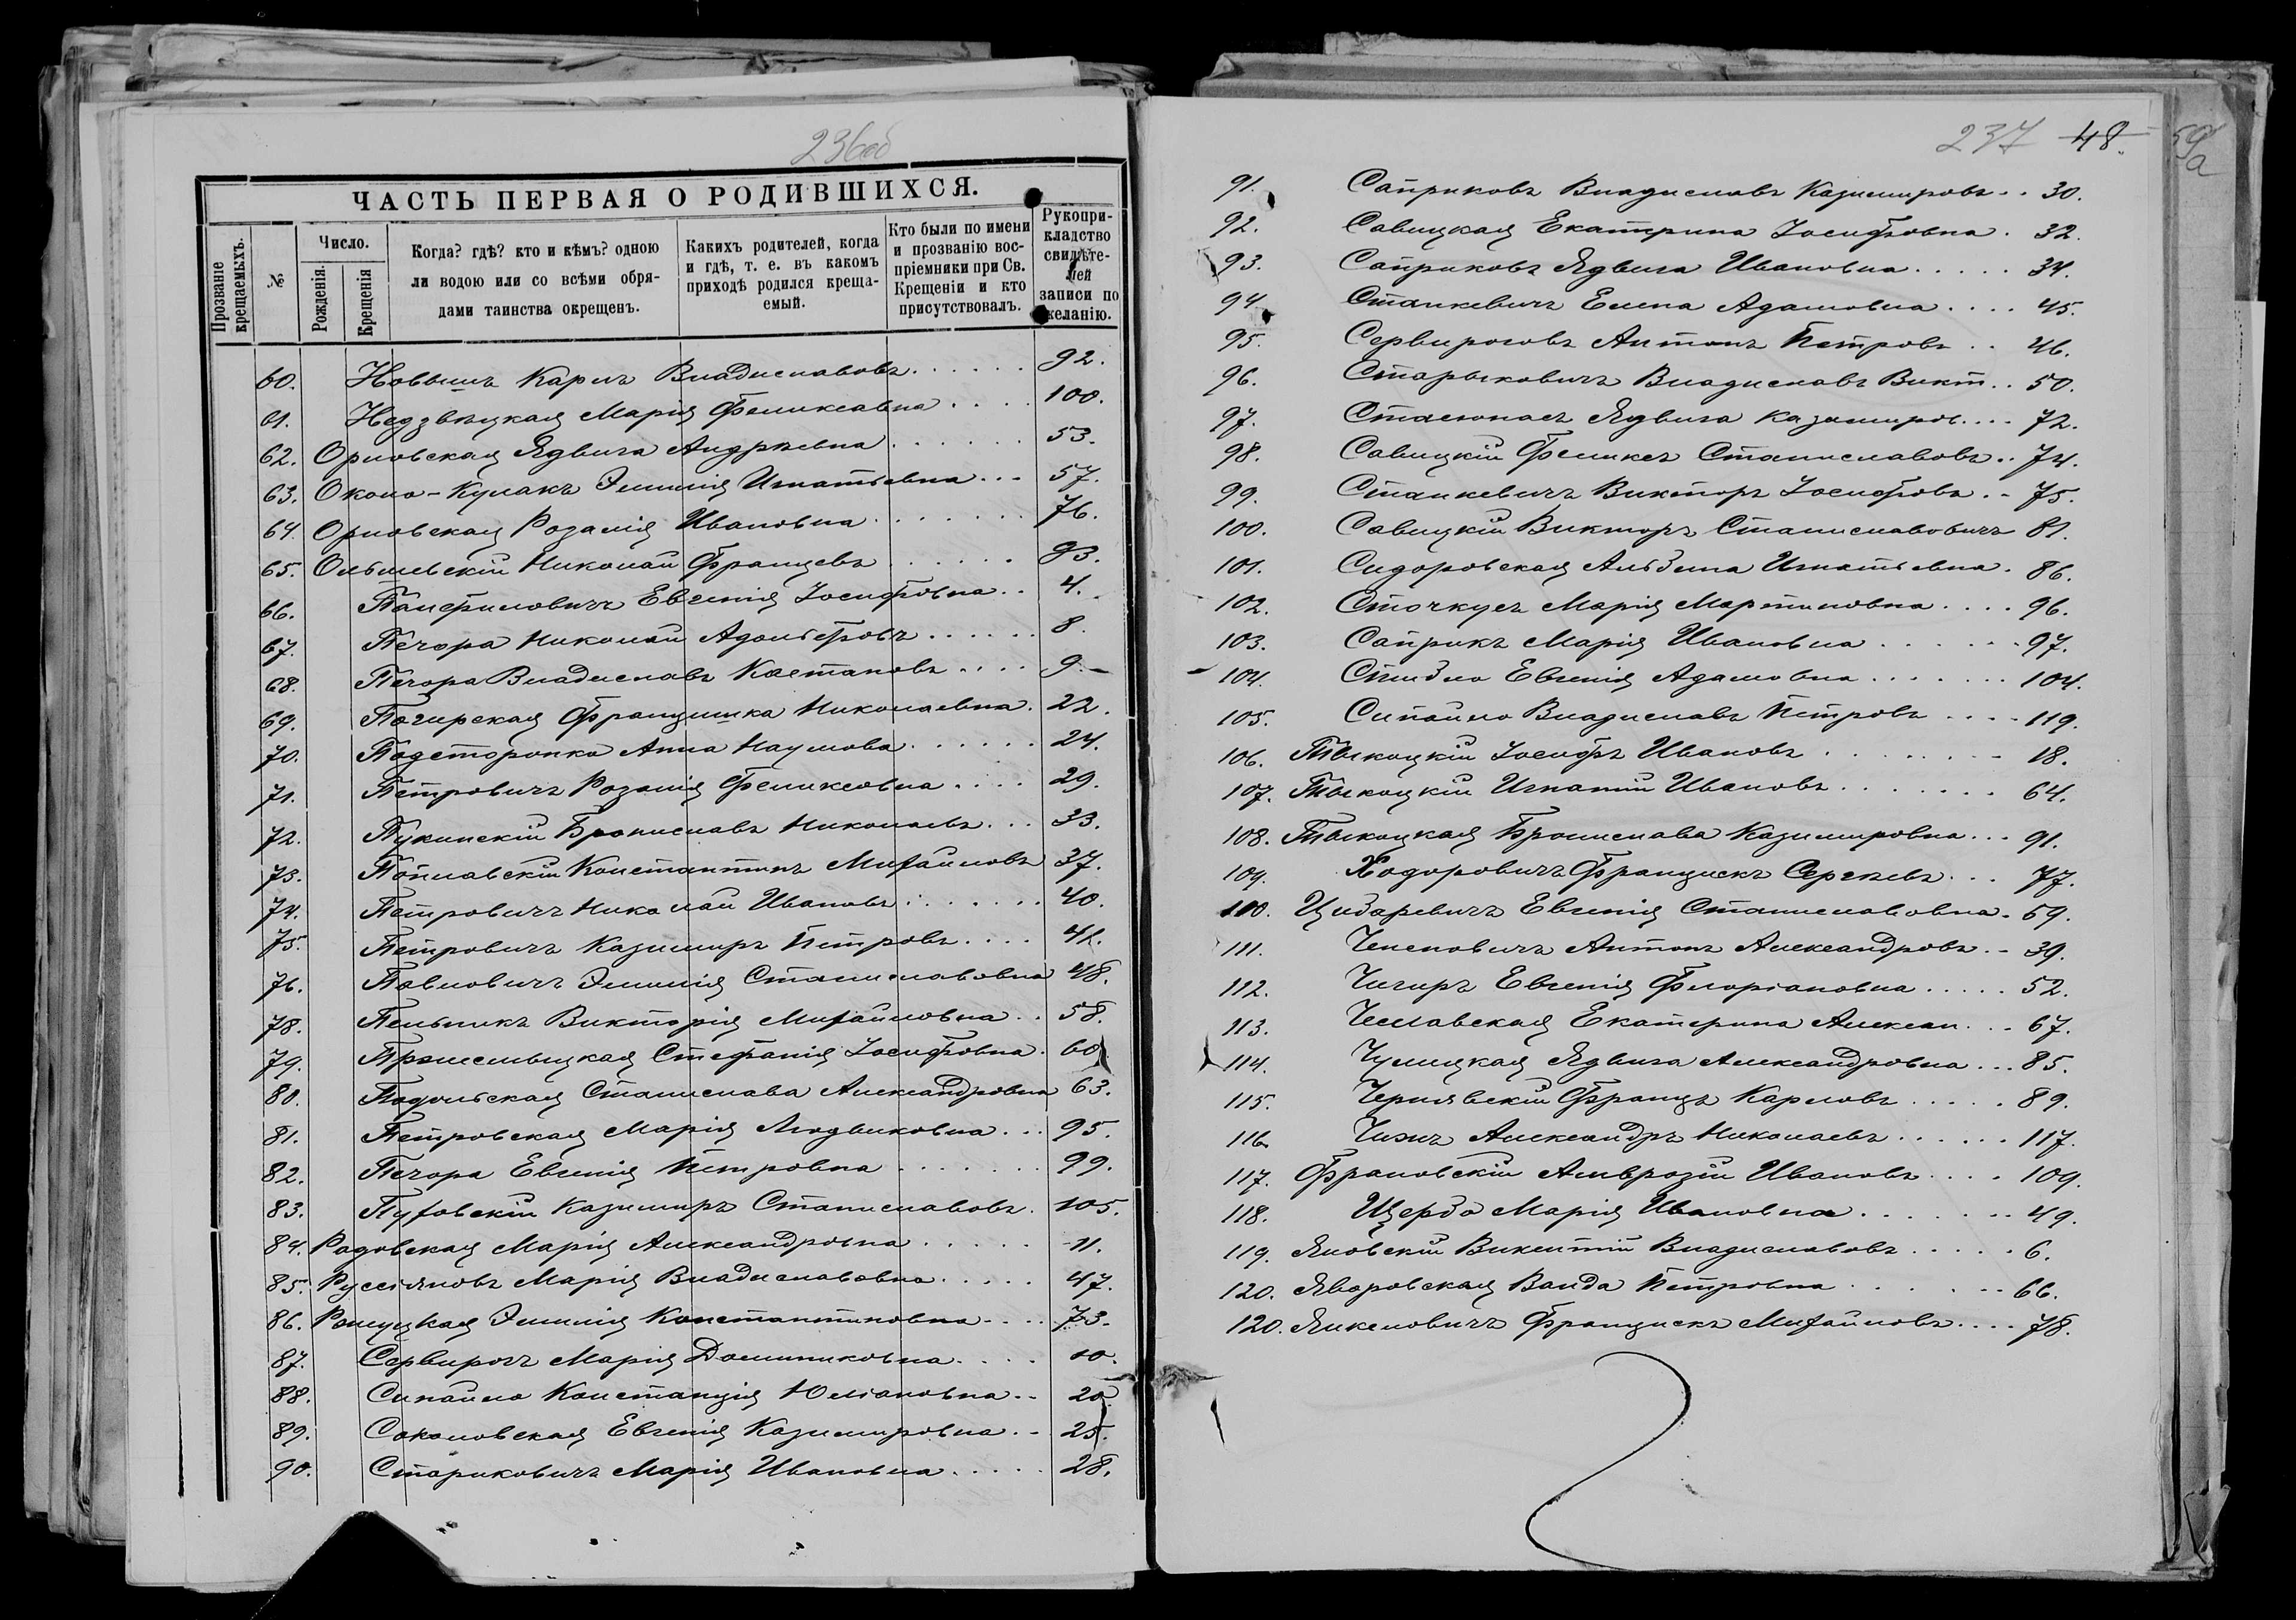 236об
ЧАСТЬ ПЕРВАЯ О РОДИВШИХСЯ.
Прозваніе крещаемыхъ.
№
Число.
Рожденія.
Крещенія
Когда? гдѣ? кто и кѣмъ? одною
ли водою или со всѣми обря-
дами таинства окрещенъ.
Какихъ родителей, когда
и гдѣ, т. е. въ какомъ
приходѣ родился креща-
емый.
Кто были по имени
и прозванію вос-
пріемники при Св.
Крещеніи и кто
присутствовалъ.
Рукопри-
кладство
свидѣте-
лей
записи по
желанію.
60. Новвишъ Карлъ Владиславовъ...... 92.
61. Недзвѣцкая Марія Феликсавна.... 100.
62. Орловская Ядвига Андреевна...... 53.
63. Около-Кулакъ Эмилія Игнатьевна... 57.
64. Орловская Розалія Ивановна....... 76.
65. Ольшевскій Николай Францевъ...... 93.
66. Панфиловичъ Евгенія Іосифовна.. 4.
67. Печора Николай Адольфовъ...... 8.
68. Печора Владиславъ Каетановъ.... 9.-
69. Погирская Францишка Николаевна. 22.
70. Подсторонко Анна Наумова...... 24.
71. Петровичъ Розалія Феликсовна.... 29.
72. Пукинскій Брониславъ Николаевъ... 33.
73. Поплавскій Константинъ Михайловъ 37.
74. Петровичъ Николай Ивановъ....... 40.
75. Петровичъ Казимиръ Петровъ.... 42.
76. Павловичъ Эмилія Станиславовна 48.
78. Пельникъ Викторія Михайловна.. 58.
79. Пржисмыцкая Стефанія Іосифовна. 60
80. Подольская Станислава Александровна 63.
81. Петровская Марія Людвиковна... 95.
82. Печора Евгенія Петровна....... 99.
83. Пуховскій Казимиръ Станиславовъ. 105.
84. Радовская Марія Александровна...... 11.
85. Руссіяновъ Марія Владиславовна..... 47.
86. Ромуцкая Эмилія Константиновна.... 73.
87. Сервирогъ Марія Доминиковна.... 10.
88. Сипайло Констанція Юліановна.. 20
89. Соколовская Евгенія Казимировна.. 25.
90. Стариковичъ Марія Ивановна..... 28.
237 48. 59а
91. Саприковъ Владиславъ Казимировъ.. 30.
92. Савицкая Екатерина Іосифовна. 32.
93. Саприковъ Ядвига Ивановна..... 34.
94. Станкевичъ Елена Адамовна.... 45.
95. Сервироговъ Антонъ Петровъ.. 46.
96. Старыковичъ Владиславъ Викт.. 50.
97. Стасюнасъ Ядвига Казимиров.... 72.
98. Савицкій Феликсъ Станиславовъ.. 74.
99. Станкевичъ Викторъ Іосифовъ.- 75.
100. Савицкій Викторъ Станиславовичъ 81.
101. Сидоровская Альбина Игнатьевна. 86.
102. Сточкусъ Марія Мартиновна.... 96.
103. Саприкъ Марія Ивановна...... 97.
104. Стибло Евгенія Адамовна....... 104.
105. Сипайло Владиславъ Петровъ.... 119.
106. Тыкоцкій Іосифъ Ивановъ......... 18.
107. Тыкоцкій Игнатій Ивановъ....... 64.
108. Тыкоцкая Бронислава Казимировна... 91.
109. Ходоровичъ Францискъ Сергѣевъ... 77.
110. Цибаревичъ Евгенія Станиславовна. 59.
111. Чепеновичъ Антонъ Александровъ.- 39.
112. Чигиръ Евгенія Флоріановна..... 52.
113. Чеславская Екатерина Алексан... 67.
114. Чулицкая Ядвига Александровна... 85.
115. Чернявскій Францъ Карловъ..... 89.
116. Чижъ Александръ Николаевъ...... 117.
117. Франовскій Амврозій Ивановъ.... 109.
118. Щерба Марія Ивановна....... 49.
119. Яновскій Викентій Владиславовъ..... 6.
120. Яворовская Ванда Петровна....... 66.
120. Якеловичъ Францискъ Михайловъ.... 78.